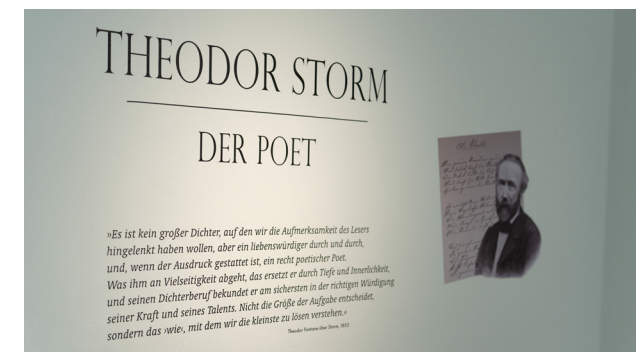 THEODOR STORM
DER POET
»Es ist kein großer Dichter, auf den wir die Aufmerksamkeit des Lesers
hingelenkt haben wollen, aber ein liebenswürdiger durch und durch,
und, wenn der Ausdruck gestattet ist, ein recht poetischer Poet.
Was ihm an Vielseitigkeit abgeht, das ersetzt er durch Tiefe und Innerlichkeit,
und seinen Dichterberuf bekundet er am sichersten in der richtigen Würdigung
seiner Kraft und seines Talents. Nicht die Größe der Aufgabe entscheidet,
sondern das ›wie‹, mit dem wir die kleinste zu lösen verstehen.«
Theodor Fontane über Storm,